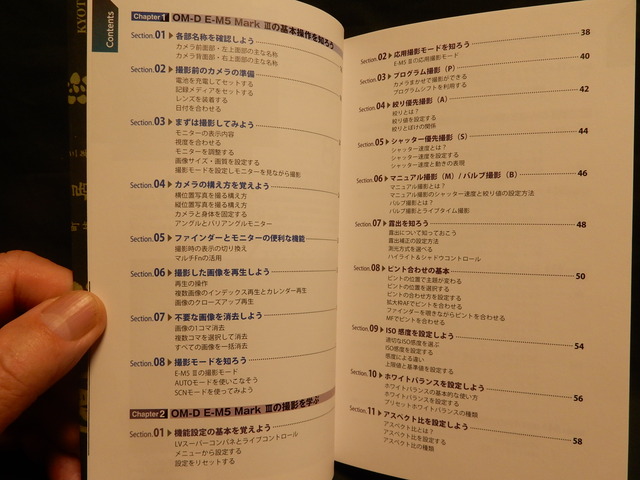 Contents
KYOT
Chapter1 OM-D E-M5 Mark Ⅲの基本操作を知ろう
Section.01 各部名称を確認しよう
カメラ前面部・左上面部の主な名称
カメラ背面部・右上面部の主な名称
Section.02 撮影前のカメラの準備
電池を充電してセットする
記録メディアをセットする
レンズを装着する
日付を合わせる
Section.03 まずは撮影してみよう
モニターの表示内容
視度を合わせる
モニターを調整する
画像サイズ・画質を設定する
撮影モードを設定しモニターを見ながら撮影
Section.04 カメラの構え方を覚えよう
横位置写真を撮る構え方
縦位置写真を撮る構え方
カメラと身体を固定する
アングルとバリアングルモニター
Section.05 ファインダーとモニターの便利な機能
撮影時の表示の切り換え
マルチFnの活用
Section.06 撮影した画像を再生しよう
再生の操作
複数画像のインデックス再生とカレンダー再生
画像のクローズアップ再生
Section.07 不要な画像を消去しよう
画像の1コマ消去
複数コマを選択して消去
すべての画像を一括消去
Section.08 撮影モードを知ろう
E-M5 Ⅲの撮影モード
AUTOモードを使いこなそう
SCNモードを使ってみよう
Chapter2 OM-D E-M5 Mark Ⅲの撮影を学ぶ
Section.01 機能設定の基本を覚えよう
LVスーパーコンパネとライブコントロール
メニューから設定する
設定をリセットする
Section.02 応用撮影モードを知ろう 38
E-M5 Ⅲの応用撮影モード
Section.03 プログラム撮影（P） 40
カメラまかせで撮影ができる
プログラムシフトを利用する
Section.04 絞り優先撮影（A） 42
絞りとは？
絞り値を設定する
絞りとぼけの関係
Section.05 シャッター優先撮影（S） 44
シャッター速度とは？
シャッター速度を設定する
シャッター速度と動きの表現
Section.06 マニュアル撮影（M）/ バルブ撮影（B） 46
マニュアル撮影とは？
マニュアル撮影のシャッター速度と絞り値の設定方法
バルブ撮影とは？
バルブ撮影とライブタイム撮影
Section.07 露出を知ろう 48
露出について知っておこう
露出補正の設定方法
測光方式を選べる
ハイライト&シャドウコントロール
Section.08 ピント合わせの基本 50
ピントの位置で主題が変わる
ピントの位置を選択する
ピントの合わせ方を設定する
拡大枠AFでピントを合わせる
ファインダーを覗きながらピントを合わせる
MFでピントを合わせる
Section.09 ISO 感度を設定しよう 54
適切なISO感度を選ぶ
ISO感度を設定する
感度による違い
上限値と基準値を設定する
Section.10 ホワイトバランスを設定しよう 56
ホワイトバランスの基本的な使い方
ホワイトバランスを設定する
プリセットホワイトバランスの種類
Section.11 アスペクト比を設定しよう 58
アスペクト比とは？
アスペクト比を設定する
アスペクト比の種類